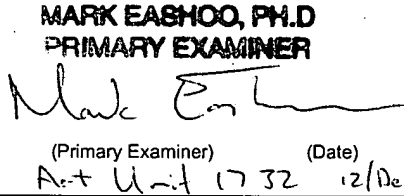 MARK EASHOO, PH.D
PRIMARY EXAMINER
Mark Eashoo
(Primary Examiner) (Date)
Art Unit 1732 12/De